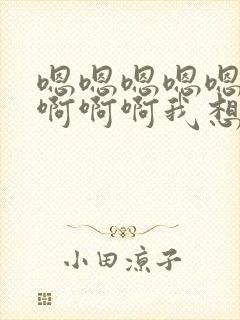 嗯嗯嗯嗯嗯
啊啊啊我想
小田凉子